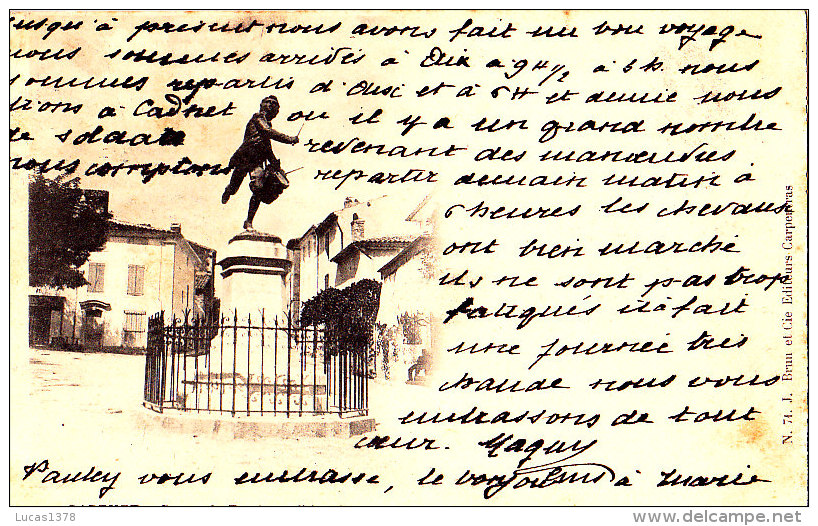 Jusqu'à présent nous avons fait un bon voyage
nous sommes arrivés à Aix à 9 H 1/2 à 5 h. nous
sommes repartis d'Aix et à 6 H et demie nous
étions à Cadnet ou il y a un grand nombre
de soldats revenant des manoeuvres
nous comptons repartir demain matin à
6 heures les chevaux
ont bien marché
ils ne sont pas trop
fatigués il à fait
une journée très
chaude nous vous
embrassons de tout
cœur. Maguy
Pauley vous embrasse, le bonjour à Marie
N. 74. J. Brun et Cie Editeurs Carpentras
Lucas1378
Lucas1378
http://www.delcampe.net